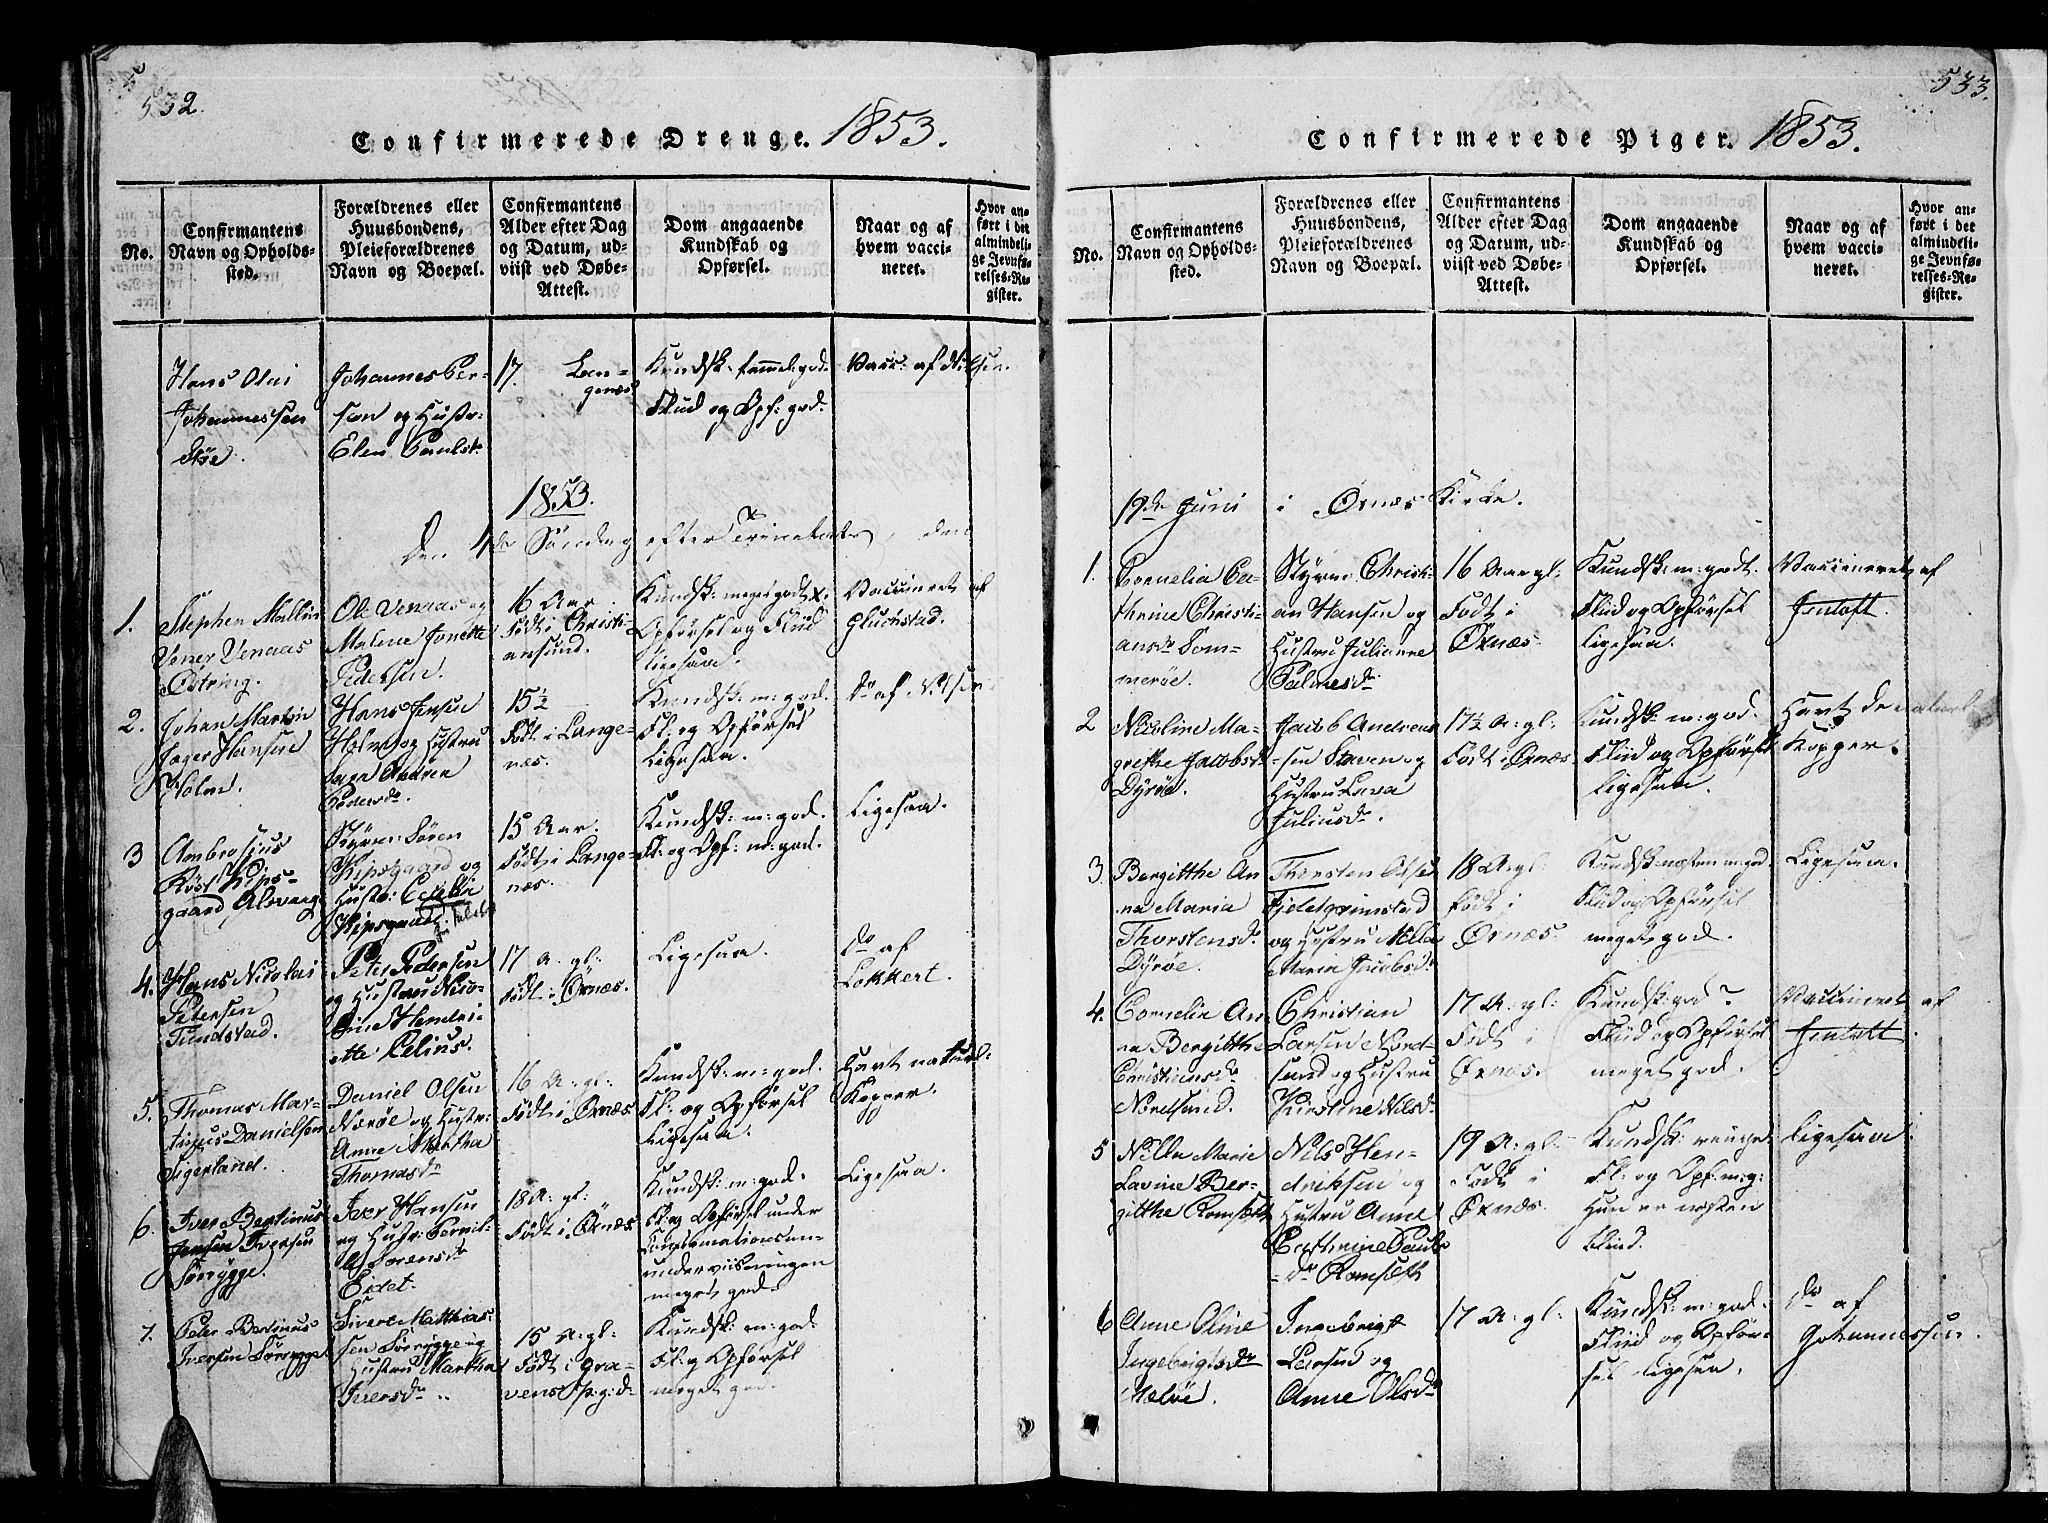 532.
Confirmerede Drenge. 1853.
No.
Confirmantens
Navn og Opholds-
sted.
Forældrenes eller
Huusbondens,
Pleieforældrenes
Navn og Boepæl.
Confirmantens
Alder efter Dag
og Datum, ud-
viist ved Døbe-
Attest.
Dom angaaende
Kundskab og
Opførsel.
Naar og af
hvem vacci-
neret.
Hvor an-
ført i det
almindeli-
ge Jevnfø-
relses-Re-
gister.
Hans Olai
Johannessen
Johannes Per-
og Hustr:
Elen Paulsd.
17.
Lan-
genæs
Kundsk: god
Fliid og Opf: god.
Vacc: af Nilsen.
1853.
Den 4de Søndag efter Trinetatis, den
1.
Stephen Mallin
Vener Venaas
Østring.
Ole Venaas og
Malene Jonette
Pedersen.
16 Aar
Født i Christi-
ansund.
Kundsk: meget godt
Opførsel og Fliid
Ligesaa.
Vaccineret af
Gluckstad.
2.
Johan Martin
Jager Hansen
Holm.
Hans Jensen
Holm og Hustru
Pedersdr
15½
Født i Lange-
næs.
Kundsk: m: god.
Fl: og Opførsel
Ligesaa.
Do af Nilsen
3
Ambrosius
Røst Kips-
gaard Alsvaag
Styrm: Søren
Kipsgaard og
Hustr: Cecilia
Kipsgaard
15 Aar.
Født i Lange-
næs.
Kundsk: m: god.
Fl: og Opf: m: god.
Ligesaa.
4.
Hans Nicolai
Petersen
Tundstad.
Peter Pedersen
og Hustru Nico-
line Hendri-
ette Pelius.
17 A: gl:
Født i Ørnæs.
Ligesaa.
Do af
Lokkert.
5.
Thomas Mar-
tinus Danielsen
Tigerland.
Daniel Olsen
Nærøe og Hustr:
Anne Martha
Thomasdr
16 A: gl:
Født i Ørnæs
Kundsk: m: god.
Fl: og Opførsel
Ligesaa.
Havt naturl:
Kopper.
6.
Iver Bertinus
Jensen Iversen
Sørrygge.
Iver Hansen
og Hustr: Pernil-
le Sorensdr
Eidet.
18 A: gl:
Født i Ørnæs
Kundsk: m: god.
Fl: og Opførsel under
Confirmationsun-
underviisningen
meget god.
Ligesaa.
7.
Peter Bertinus
Iversen Sørrygge
Sivert Mathias-
sen Sørrygge og
Hustru Martha
Iversdr.
15 A: gl:
Født i Gra-
vens Pg:
Kundsk: m: god
Fl: g Opførsel
meget god.
533.
Confirmerede Piger. 1853.
No.
Confirmantens
Navn og Opholds-
sted.
Forældrenes eller
Huusbondens,
Pleieforældrenes
Navn og Boepæl.
Confirmantens
Alder efter Dag
og Datum, ud-
viist ved Døbe-
Attest.
Dom angaaende
Kundskab og
Opførsel.
Naar og af
hvem vacci-
neret.
Hvor an-
ført i det
almindeli-
ge Jevnfø-
relses-Re-
gister.
19de Juni i Ørnæs Kirke.
1.
Cornelia Ca-
thrine Christi-
ansdr Som-
merøe.
Styrm: Christi-
an Hansen og
Hustru Julianne
Palmesdr
16 Aar gl:
Født i
Ørnæs
Kundsk: m: godt.
Fliid og Opførsel
Ligesaa.
Vaccineret af
Jentoft.
2
Nicoline Ma-
grethe Jacobsdr
Dyrøe.
Jacob Andreas-
sen Staven og
Hustru Lava
Juliusdr.
17½ A: gl:
Født i Ørnæs
Kundsk: m: god.
Fliid og Opførsel
Ligesaa.
Havt de naturl
Kopper.
3.
Bergitthe An-
na Maria
Thorstensdr
Dyrøe.
Thorsten Olsen
Fjeldgrimstad
og Hustru Milla
Maria Jacobsdr
18 A: gl:
Født i
Ørnæs
Kundsk: næsten m: god
Fliid og Opførsel
meget god.
Ligesaa.
4.
Cornelia An-
na Bergitthe
Christiansdr
Nordsund.
Christian
Larsen Nord-
sund og Hustru
Kirstine Nilsdr
17 A: gl:
Født i
Ørnæs.
Kundsk: god?
Fliid og Opførsel
meget god.
Vaccineret af
Jentoft.
5
Nilla Marie
Lavine Ber-
gitthe Romsæth
Nils Hen-
driksen og
Hustru Anne
Cathrine Pauls-
dr Romsæth
19 A: gl:
Født i
Ørnæs.
Kundsk: ringe.
Fl: og Opf: m: g:
Hun er næsten
blind.
Ligesaa.
6
Anne Oline
Ingebrigtsdr
Mæløe.
Ingebrigt
Larsen og
Anne Olsdr
17 A: gl:
Kundsk: m: god.
Fliid og Opfør-
sel ligesaa.
Do af
Johannessen.